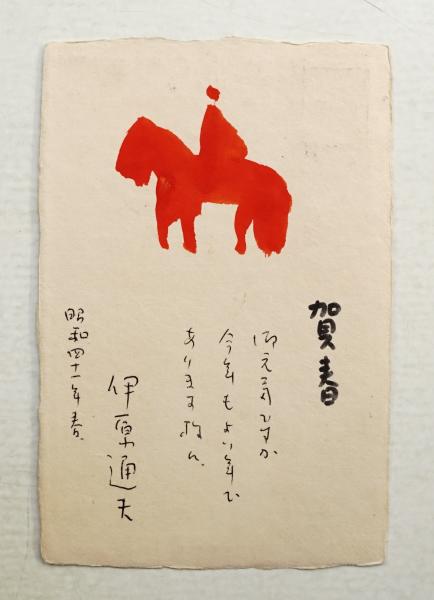 賀春
御元気ですか
今年もよい年で
あります様に
伊原通夫
昭和四十一年春